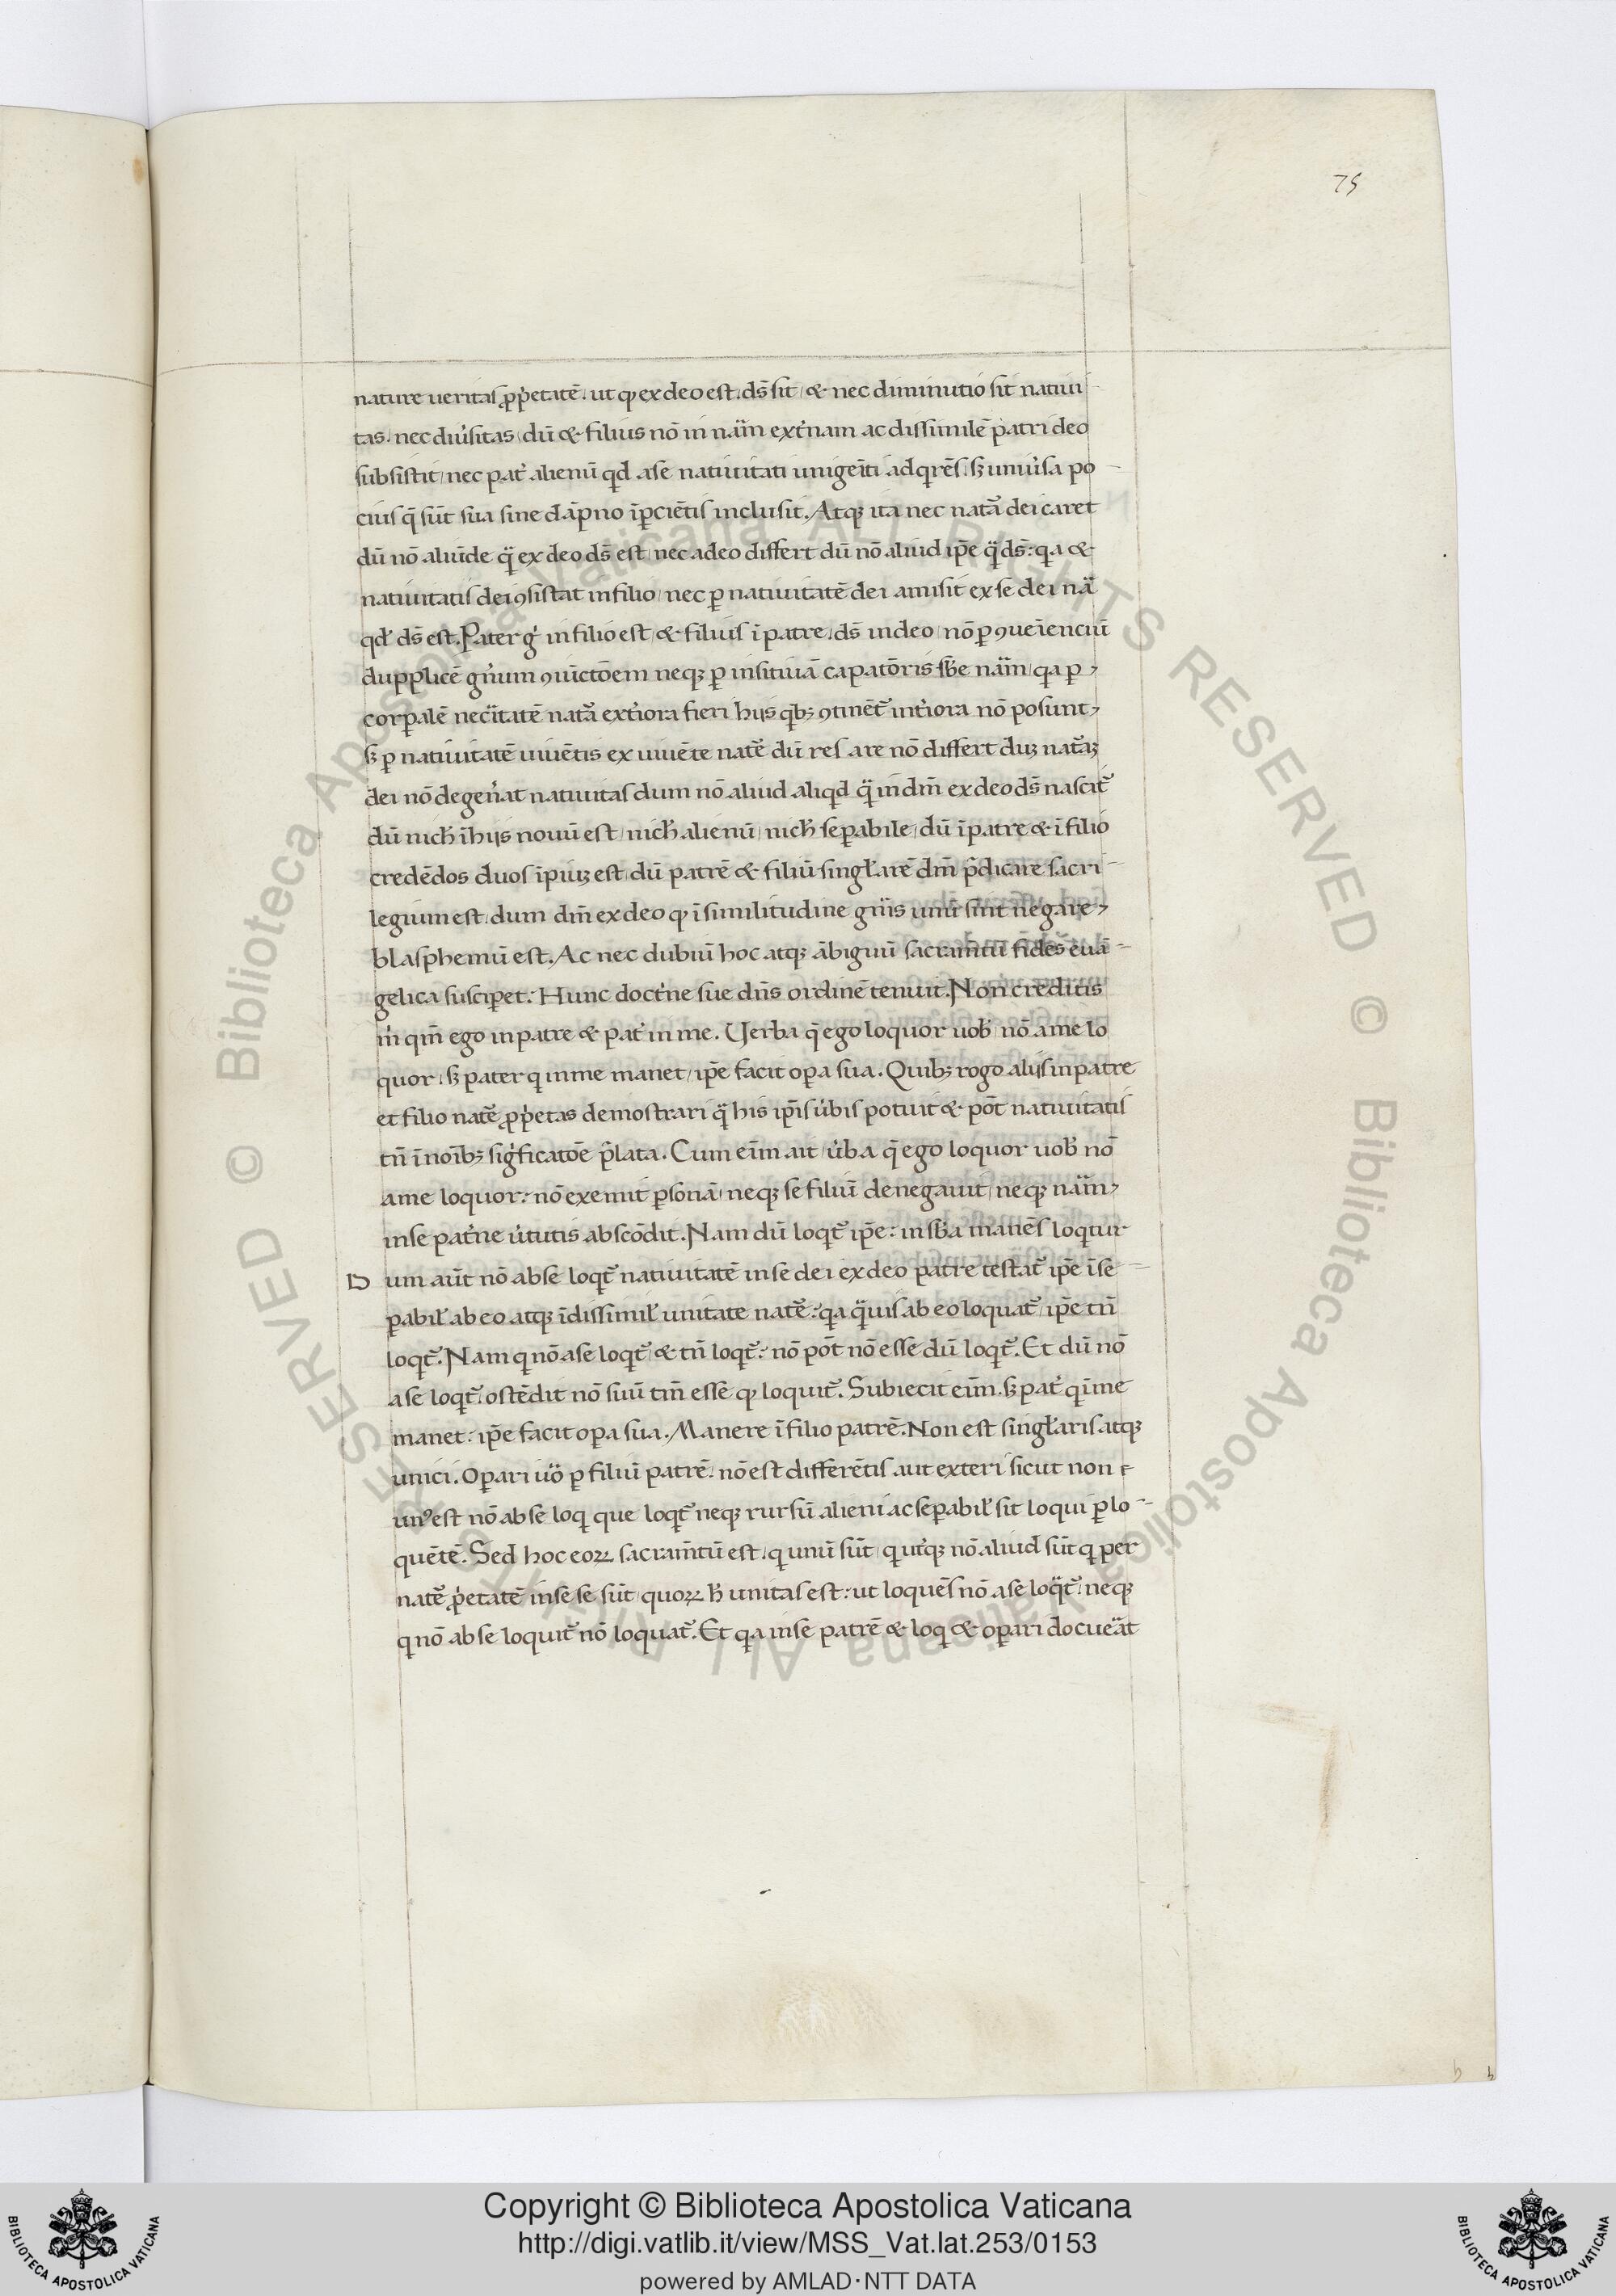 75
nature ueritas ꝓp̍etatē. ut ꝙ ex deo est. ds̄ sit, & nec diminutio sit natiui-
tas. nec diu̍sitas, dū & filius nō in nām ext̍nam ac dissimilē patri deo
subsistit, nec pat̍ alienū qd̄ a se natiuitati unigeīti adqrēs. sꝫ uniu̍sa po-
cius q̄ sūt sua sine dāpno īpciētis inclusit. Atqꝫ ita nec natā dei caret
dū nō aliūde qͣ ex deo ds̄ est, nec a deo differt dū nō aliud ip̄e qͣ ds̄: qa &
natiuitatis dei ꝯsistat in filio, nec ꝑ natiuitatē dei amisit ex se dei nā
qd̍ ds̄ est. Pater g̍ in filio est, & filius ī patre, ds̄ in deo, nō ꝑ ꝯueīenciū
dupplicē gn̍um ꝯiūctōem neqꝫ ꝑ insitiuā capatōris sb̄e nām, qa ꝑ
corꝑalē nec̄itatē natā ext̍iora fieri hijs qbꝫ ꝯtinēt̃ int̍iora nō posunt,
sꝫ ꝑ natiuitatē uiuētis ex uiuēte nat̃e dū res a re nō differt duꝫ nat̃aꝫ
dei nō degen̍at natiuitas dum nō aliud aliqd qͣ in dm̄ ex deo ds̄ nascit̃
dū nich̍ ī hijs nouū est, nich̍ alienū, nich̍ seꝑabile, dū ī patre & ī filio
credēdos duos īpiuꝫ est, dū patrē & filiū singl̍arē dm̄ p̄dicare sacri-
legium est, dum dm̄ ex deo ꝙ ī similitudine gn̍is unū sint negare,
blasphemū est. Ac nec dubiū hoc atqꝫ ābiguū sacramtū fides euā-
gelica susciꝑet: Hunc doct̍ne sue dn̄s ordinē tenuit. Non creditis
m̍ qm̄ ego in patre & pat̍ in me. Uerba q̄ ego loquor uob̍ nō a me lo
quor, sꝫ pater q in me manet, ip̄e facit oꝑa sua. Quibꝫ rogo alijs in patre
et filio nat̃e ꝓp̍etas demostrari qͣ his ip̄is u̍bis potuit & pōt natiuitatis
tn̄ ī noībꝫ sig̍ficatōe p̄lata. Cum eīm ait u̍ba q̄ ego loquor uob̍ nō
a me loquor: nō exemit ꝑsonā, neqꝫ se filiū denegauit, neqꝫ nām,
in se pat̍ne u̍tutis abscōdit. Nam dū loqt̃ ip̄e: in sb̄a manēs loqtur
D um aūt nō ab se loqt̃ natiuitatē in se dei ex deo patre testat̃ ip̄e īse-
ꝑabil̍ ab eo atqꝫ īdissimil̍ unitate nat̃e: qa qͣuis ab eo loquat̃, ip̄e tn̄
loqt̃. Nam q nō a se loqt̃ & tn̄ loqt̃: nō pōt nō esse dū loqt̃. Et dū nō
a se loqt̃. ostēdit nō suū tm̄ esse ꝙ loquit̃. Subiecit eīm. sꝫ pat̍ q ī me
manet: ip̄e facit oꝑa sua. Manere ī filio patrē. Non est singl̍aris atqꝫ
unici. Oꝑari uͦ ꝑ filiū patrē. nō est differētis aut exteri sicut non
unꝰ est nō ab se loq que loqt̃ neqꝫ rursū alieni ac seꝑabil̍ sit loqui ꝑ lo-
quētē. Sed hoc eoꝝ sacram̄tū est, q unū sūt, q ut̍qꝫ nō aliud sūt q per
nat̃e ꝓp̍etatē in se se sūt, quoꝝ h̍ unitas est: ut loquēs nō a se loqt̃: neqꝫ
q nō ab se loquit̃ nō loquat̃. Et qa in se patrē & loq & oꝑari docueāt
Copyright © Biblioteca Apostolica Vaticana
http://digi.vatlib.it/view/MSS_Vat.lat.253/0153
powered by AMLAD·NTT DATA